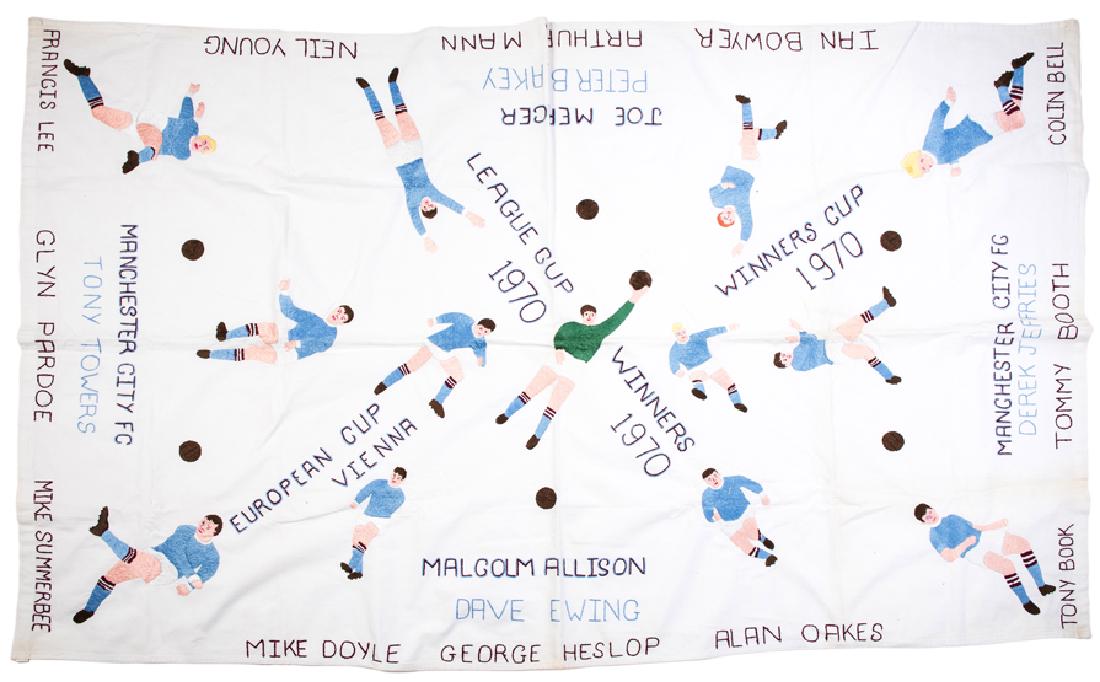 NEIL YOUNG
ARTHUR MANN
IAN BOWYER
PETER BLAKEY
JOE MERCER
FRANCIS LEE
COLIN BELL
LEAGUE CUP
1970
WINNERS CUP
1970
GLYN PARDOE
TONY TOWERS
MANCHESTER CITY FC
MANCHESTER CITY FC
DEREK JEFFRIES
TOMMY BOOTH
EUROPEAN CUP
VIENNA
WINNERS
1970
MIKE SUMMERBEE
TONY BOOK
MALCOLM ALLISON
DAVE EWING
MIKE DOYLE
GEORGE HESLOP
ALAN OAKES